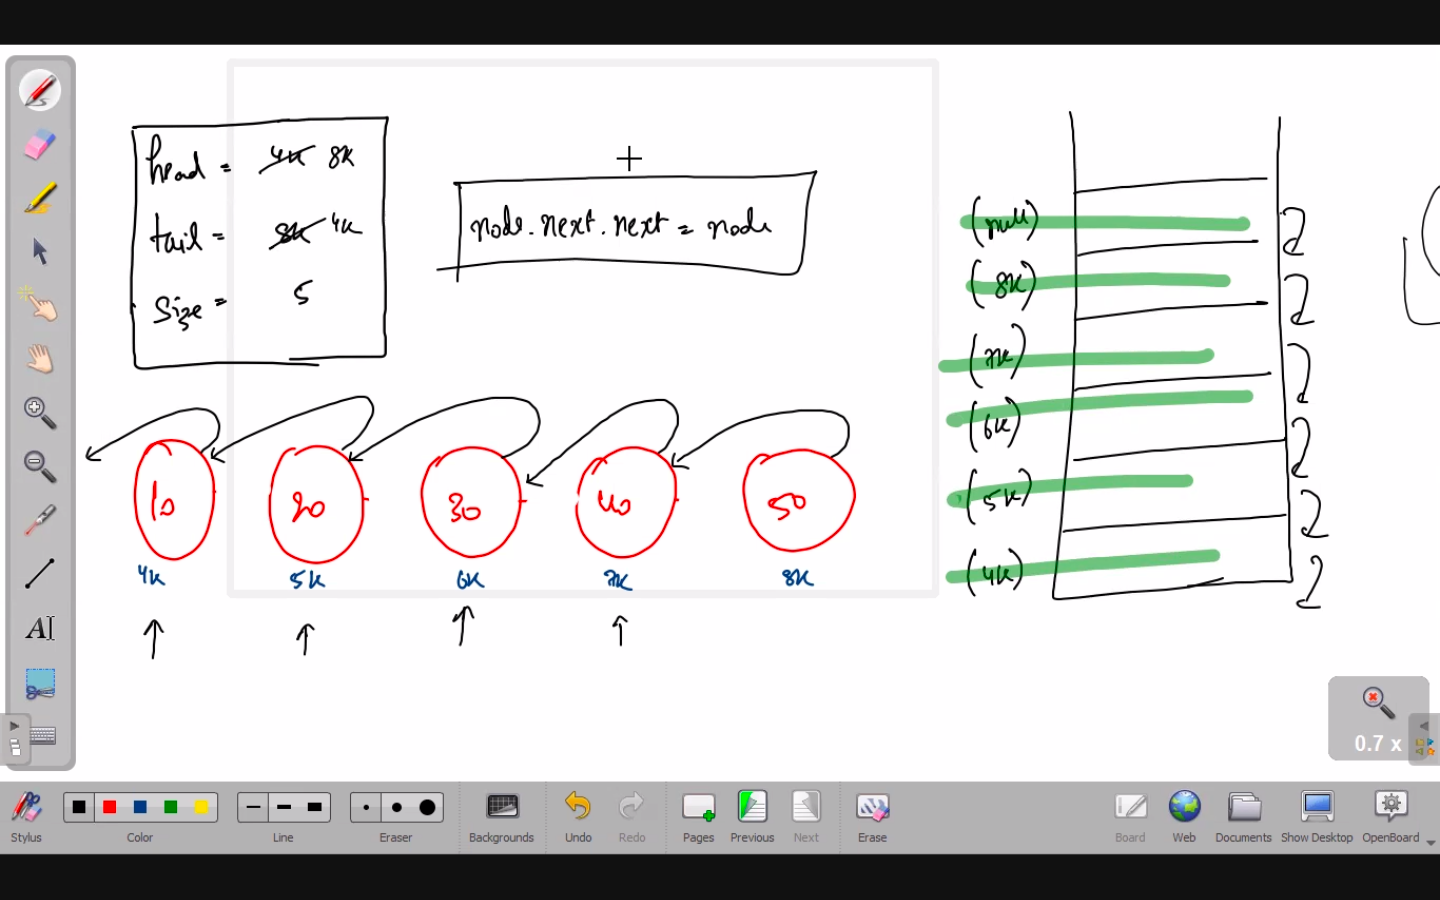 head = 4K 8K
tail = 8K 4K
Size = 5
node.next.next = node
(null) 2
(8K) 2
(7K) 2
(6K) 2
(5K) 2
(4K) 2
10 20 30 40 50
4K 5K 6K 7K 8K
AI
0.7 x
Stylus Color Line Eraser Backgrounds Undo Redo Pages Previous Next Erase Board Web Documents Show Desktop OpenBoard